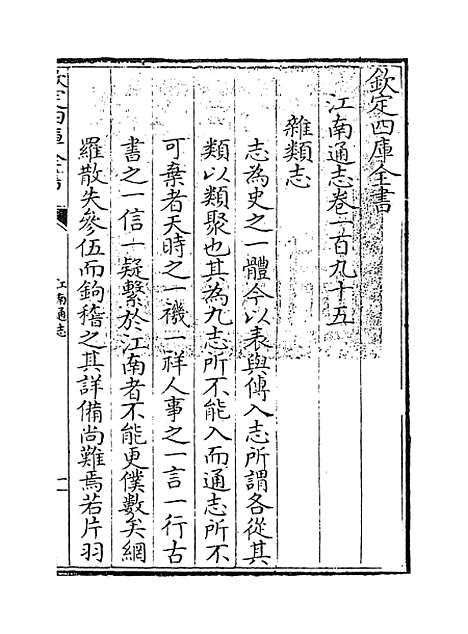 欽定四庫全書
江南通志卷一百九十五
雜類志
志為史之一體今以表與傳入志所謂各從其
類以類聚也其為九志所不能入而通志所不
可棄者天時之一禨一祥人事之一言一行古
書之一信一疑繫於江南者不能更僕數矣網
羅散失參伍而鉤稽之其詳備尚難焉若片羽
欽定四庫全書
江南通志
一